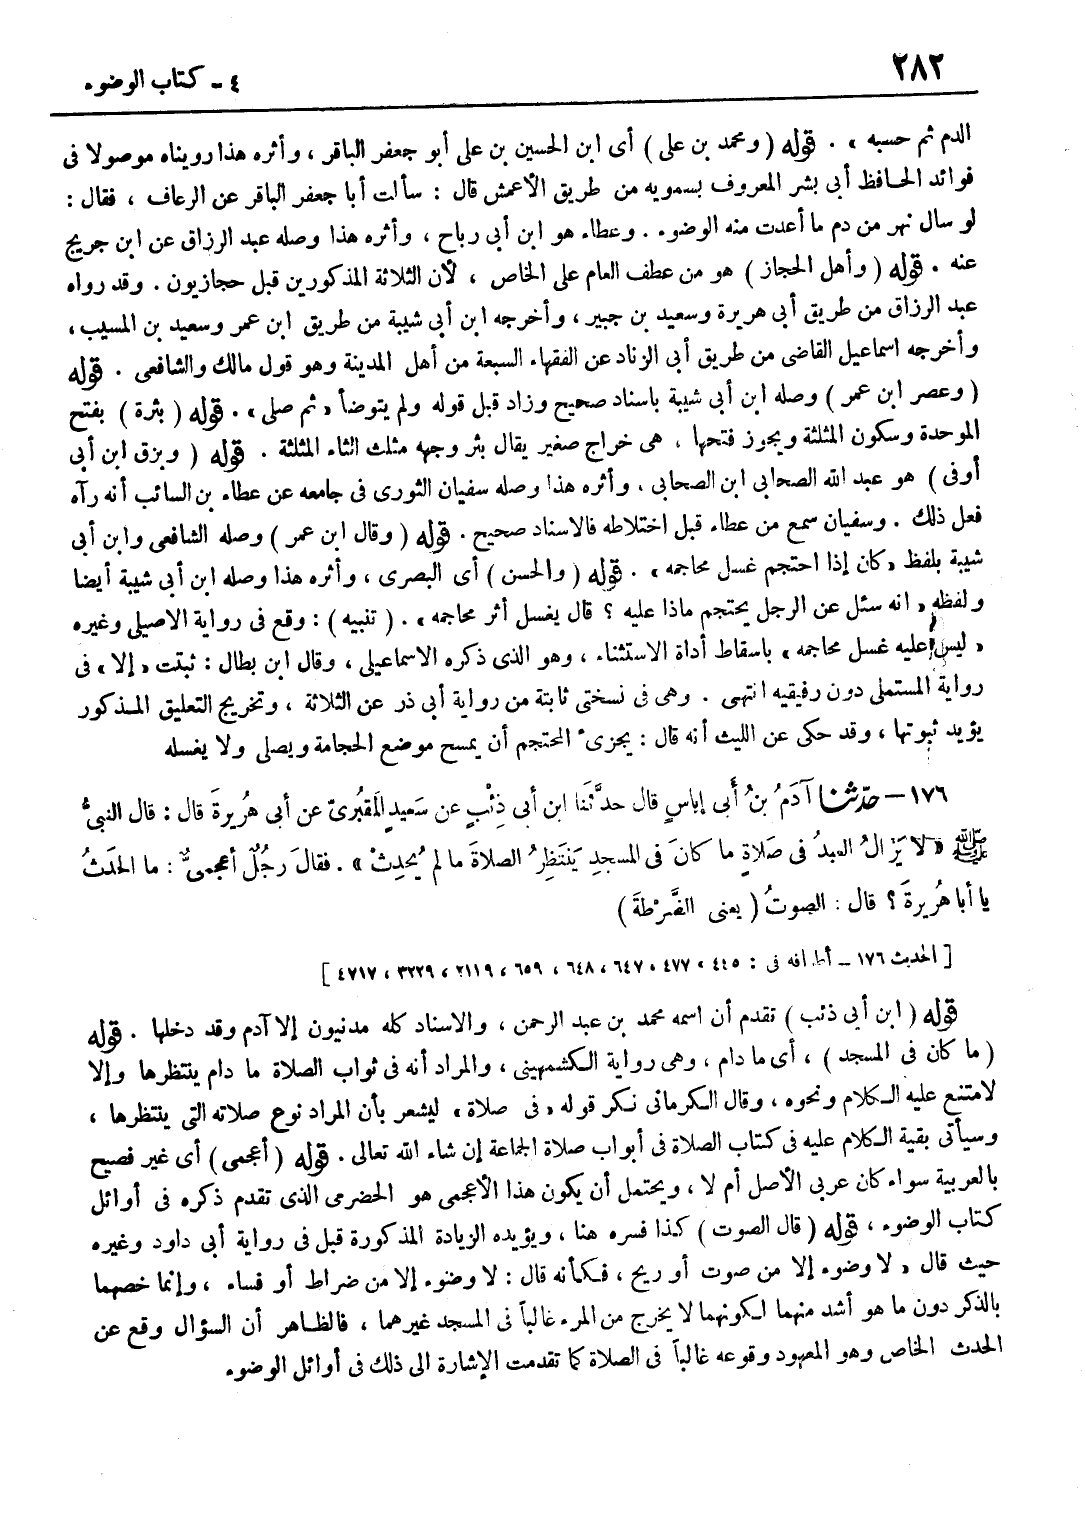 ٢٨٢
٤ - كتاب الوضوء
الدم ثم حسبه » . قوله ( ومحمد بن على ) أى ابن الحسين بن على أبو جعفر الباقر ، وأثره هذا رويناه موصولا فى
فوائد الحافظ أبى بشر المعروف بسمويه من طريق الأعمش قال : سألت أبا جعفر الباقر عن الرعاف ، فقال :
لو سال نهر من دم ما أعدت منه الوضوء . وعطاء هو ابن أبى رباح ، وأثره هذا وصله عبد الرزاق عن ابن جريج
عنه . قوله ( وأهل الحجاز ) هو من عطف العام على الخاص ، لأن الثلاثة المذكورين قبل حجازيون . وقد رواه
عبد الرزاق من طريق أبى هريرة وسعيد بن جبير ، وأخرجه ابن أبى شيبة من طريق ابن عمر وسعيد بن المسيب ،
وأخرجه اسماعيل القاضى من طريق أبى الزناد عن الفقهاء السبعة من أهل المدينة وهو قول مالك والشافعى . قوله
( وعصر ابن عمر ) وصله ابن أبى شيبة باسناد صحيح وزاد قبل قوله ولم يتوضأ « ثم صلى » . قوله ( بثرة ) بفتح
الموحدة وسكون المثلثة ويجوز فتحها ، هى خراج صغير يقال بثر وجهه مثلث الثاء المثلثة . قوله ( وبزق ابن أبى
أوفى ) هو عبد الله الصحابى ابن الصحابى ، وأثره هذا وصله سفيان الثورى فى جامعه عن عطاء بن السائب أنه رآه
فعل ذلك . وسفيان سمع من عطاء قبل اختلاطه فالاسناد صحيح . قوله ( وقال ابن عمر ) وصله الشافعى وابن أبى
شيبة بلفظ « كان إذا احتجم غسل محاجمه » . قوله ( والحسن ) أى البصرى ، وأثره هذا وصله ابن أبى شيبة أيضا
ولفظه « انه سئل عن الرجل يحتجم ماذا عليه ؟ قال يغسل أثر محاجمه » . ( تنبيه ) : وقع فى رواية الاصيلى وغيره
« ليس عليه غسل محاجمه » باسقاط أداة الاستثناء ، وهو الذى ذكره الاسماعيلى ، وقال ابن بطال : ثبتت « إلا » فى
رواية المستملى دون رفيقيه انتهى . وهى فى نسختى ثابتة من رواية أبى ذر عن الثلاثة ، وتخريج التعليق المذكور
يؤيد ثبوتها ، وقد حكى عن الليث أنه قال : يجزئ المحتجم أن يمسح موضع الحجامة ويصلى ولا يغسله
١٧٦ – حدّثنا آدَمُ بنُ أَبى إياسٍ قال حدَّثَنا ابن أبى ذِئْبٍ عن سَعيدٍ المَقبُرىِّ عن أبى هُريرةَ قال : قال النبىُّ
ﷺ « لا يَزالُ العبدُ فى صَلاةٍ ما كانَ فى المسجدِ يَنتَظِرُ الصلاةَ ما لم يُحدِثْ » . فقالَ رجُلٌ أعجمىٌّ : ما الحَدَثُ
يا أبا هُريرةَ ؟ قال : الصوتُ ( يعنى الضَّرْطةَ )
[ الحديث ١٧٦ – أطرافه فى : ٤٤٥ ، ٤٧٧ ، ٦٤٧ ، ٦٤٨ ، ٦٥٩ ، ٢١١٩ ، ٣٢٢٩ ، ٤٧١٧ ]
قوله ( ابن أبى ذئب ) تقدم أن اسمه محمد بن عبد الرحمن ، والاسناد كله مدنيون إلا آدم وقد دخلها . قوله
( ما كان فى المسجد ) ، أى ما دام ، وهى رواية الكشميهنى ، والمراد أنه فى ثواب الصلاة ما دام ينتظرها وإلا
لامتنع عليه الكلام ونحوه ، وقال الكرمانى نكر قوله « فى صلاة » ليشعر بأن المراد نوع صلاته التى ينتظرها ،
وسيأتى بقية الكلام عليه فى كتاب الصلاة فى أبواب صلاة الجماعة إن شاء الله تعالى . قوله ( أعجمى ) أى غير فصيح
بالعربية سواء كان عربى الأصل أم لا ، ويحتمل أن يكون هذا الأعجمى هو الحضرمى الذى تقدم ذكره فى أوائل
كتاب الوضوء ، قوله ( قال الصوت ) كذا فسره هنا ، ويؤيده الزيادة المذكورة قبل فى رواية أبى داود وغيره
حيث قال « لا وضوء إلا من صوت أو ريح ، فكأنه قال : لا وضوء إلا من ضراط أو فساء ، وإنما خصهما
بالذكر دون ما هو أشد منهما لكونهما لا يخرج من المرء غالباً فى المسجد غيرهما ، فالظاهر أن السؤال وقع عن
الحدث الخاص وهو المعهود وقوعه غالباً فى الصلاة كما تقدمت الإشارة الى ذلك فى أوائل الوضوء